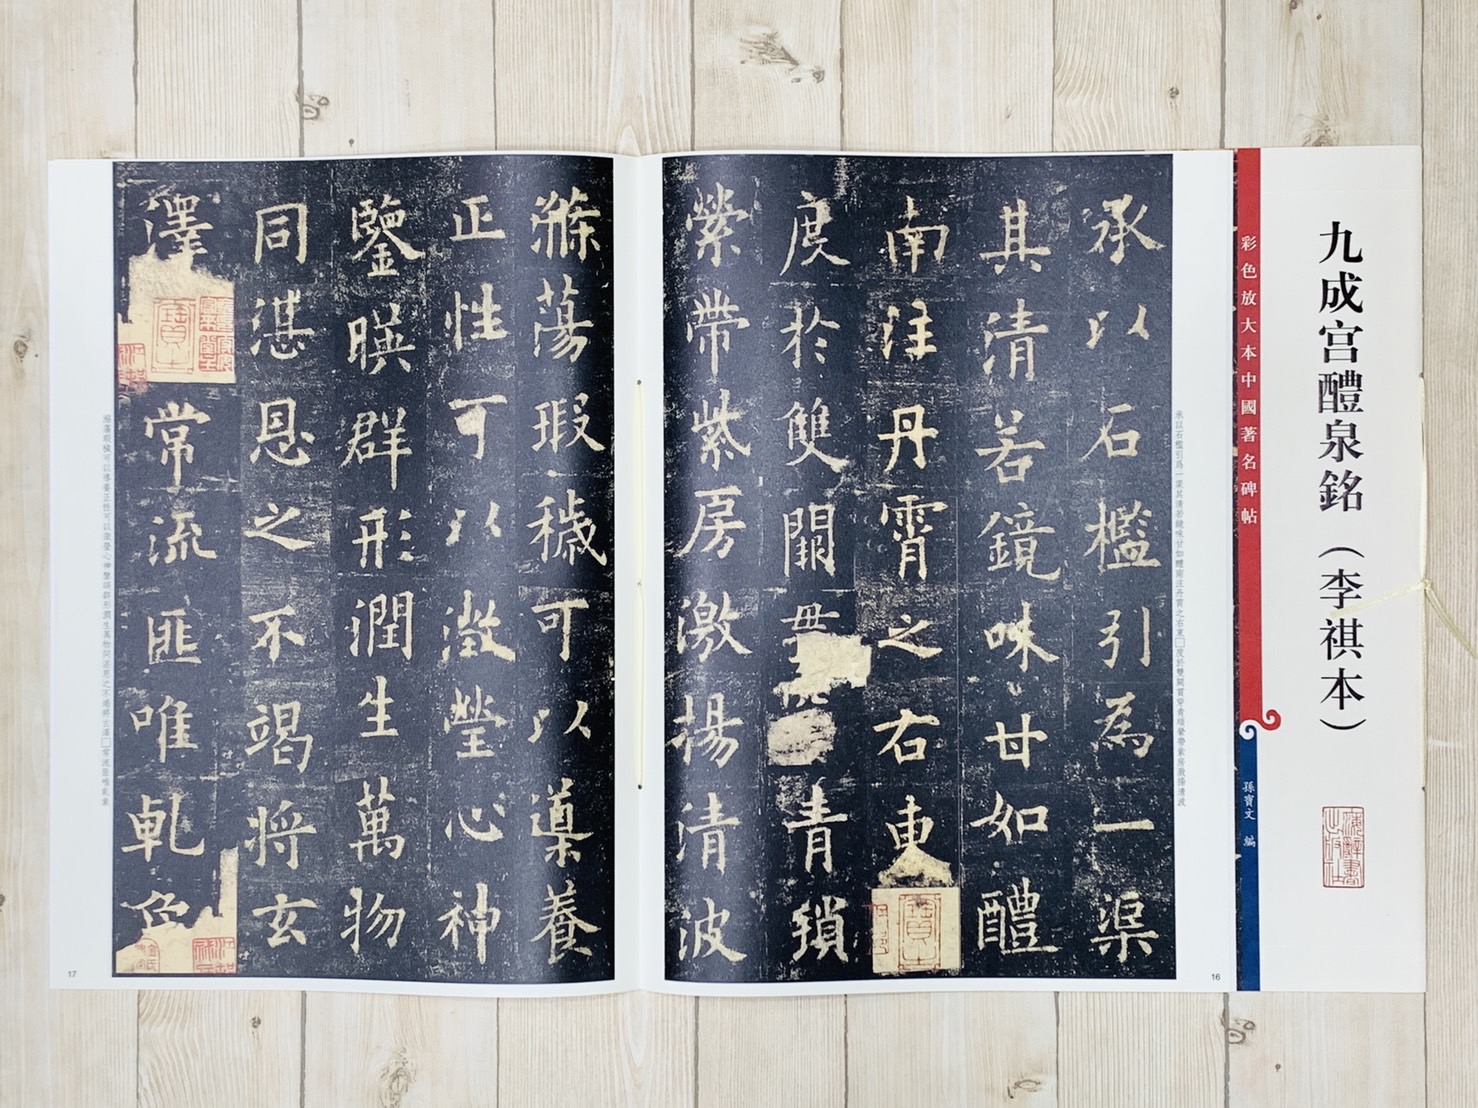 九成宫醴泉銘（李祺本）
彩色放大本中國著名碑帖
孫寶文 編
承以石檻引爲一渠其清若鏡味甘如醴南注丹霄之右東□度於雙闕貫穿青瑣縈帶紫房激揚清波
承以石檻引為一渠
其清若鏡味甘如醴
南注丹霄之右東
度於雙闕貫青瑣
縈帶紫房激揚清波
16
滌蕩瑕穢可以導養
正性可以澂瑩心神
鑒暎群形潤生萬物
同湛恩之不竭將玄
澤常流匪唯乾象
滌蕩瑕穢可以導養正性可以澂瑩心神鑒暎群形潤生萬物同湛恩之不竭將玄澤□常流匪唯乾象
17